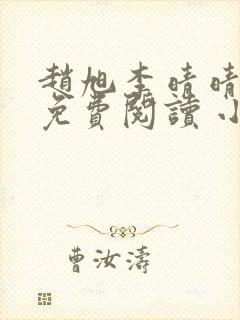 趙旭李晴晴
免費閱讀小
曹汝濤